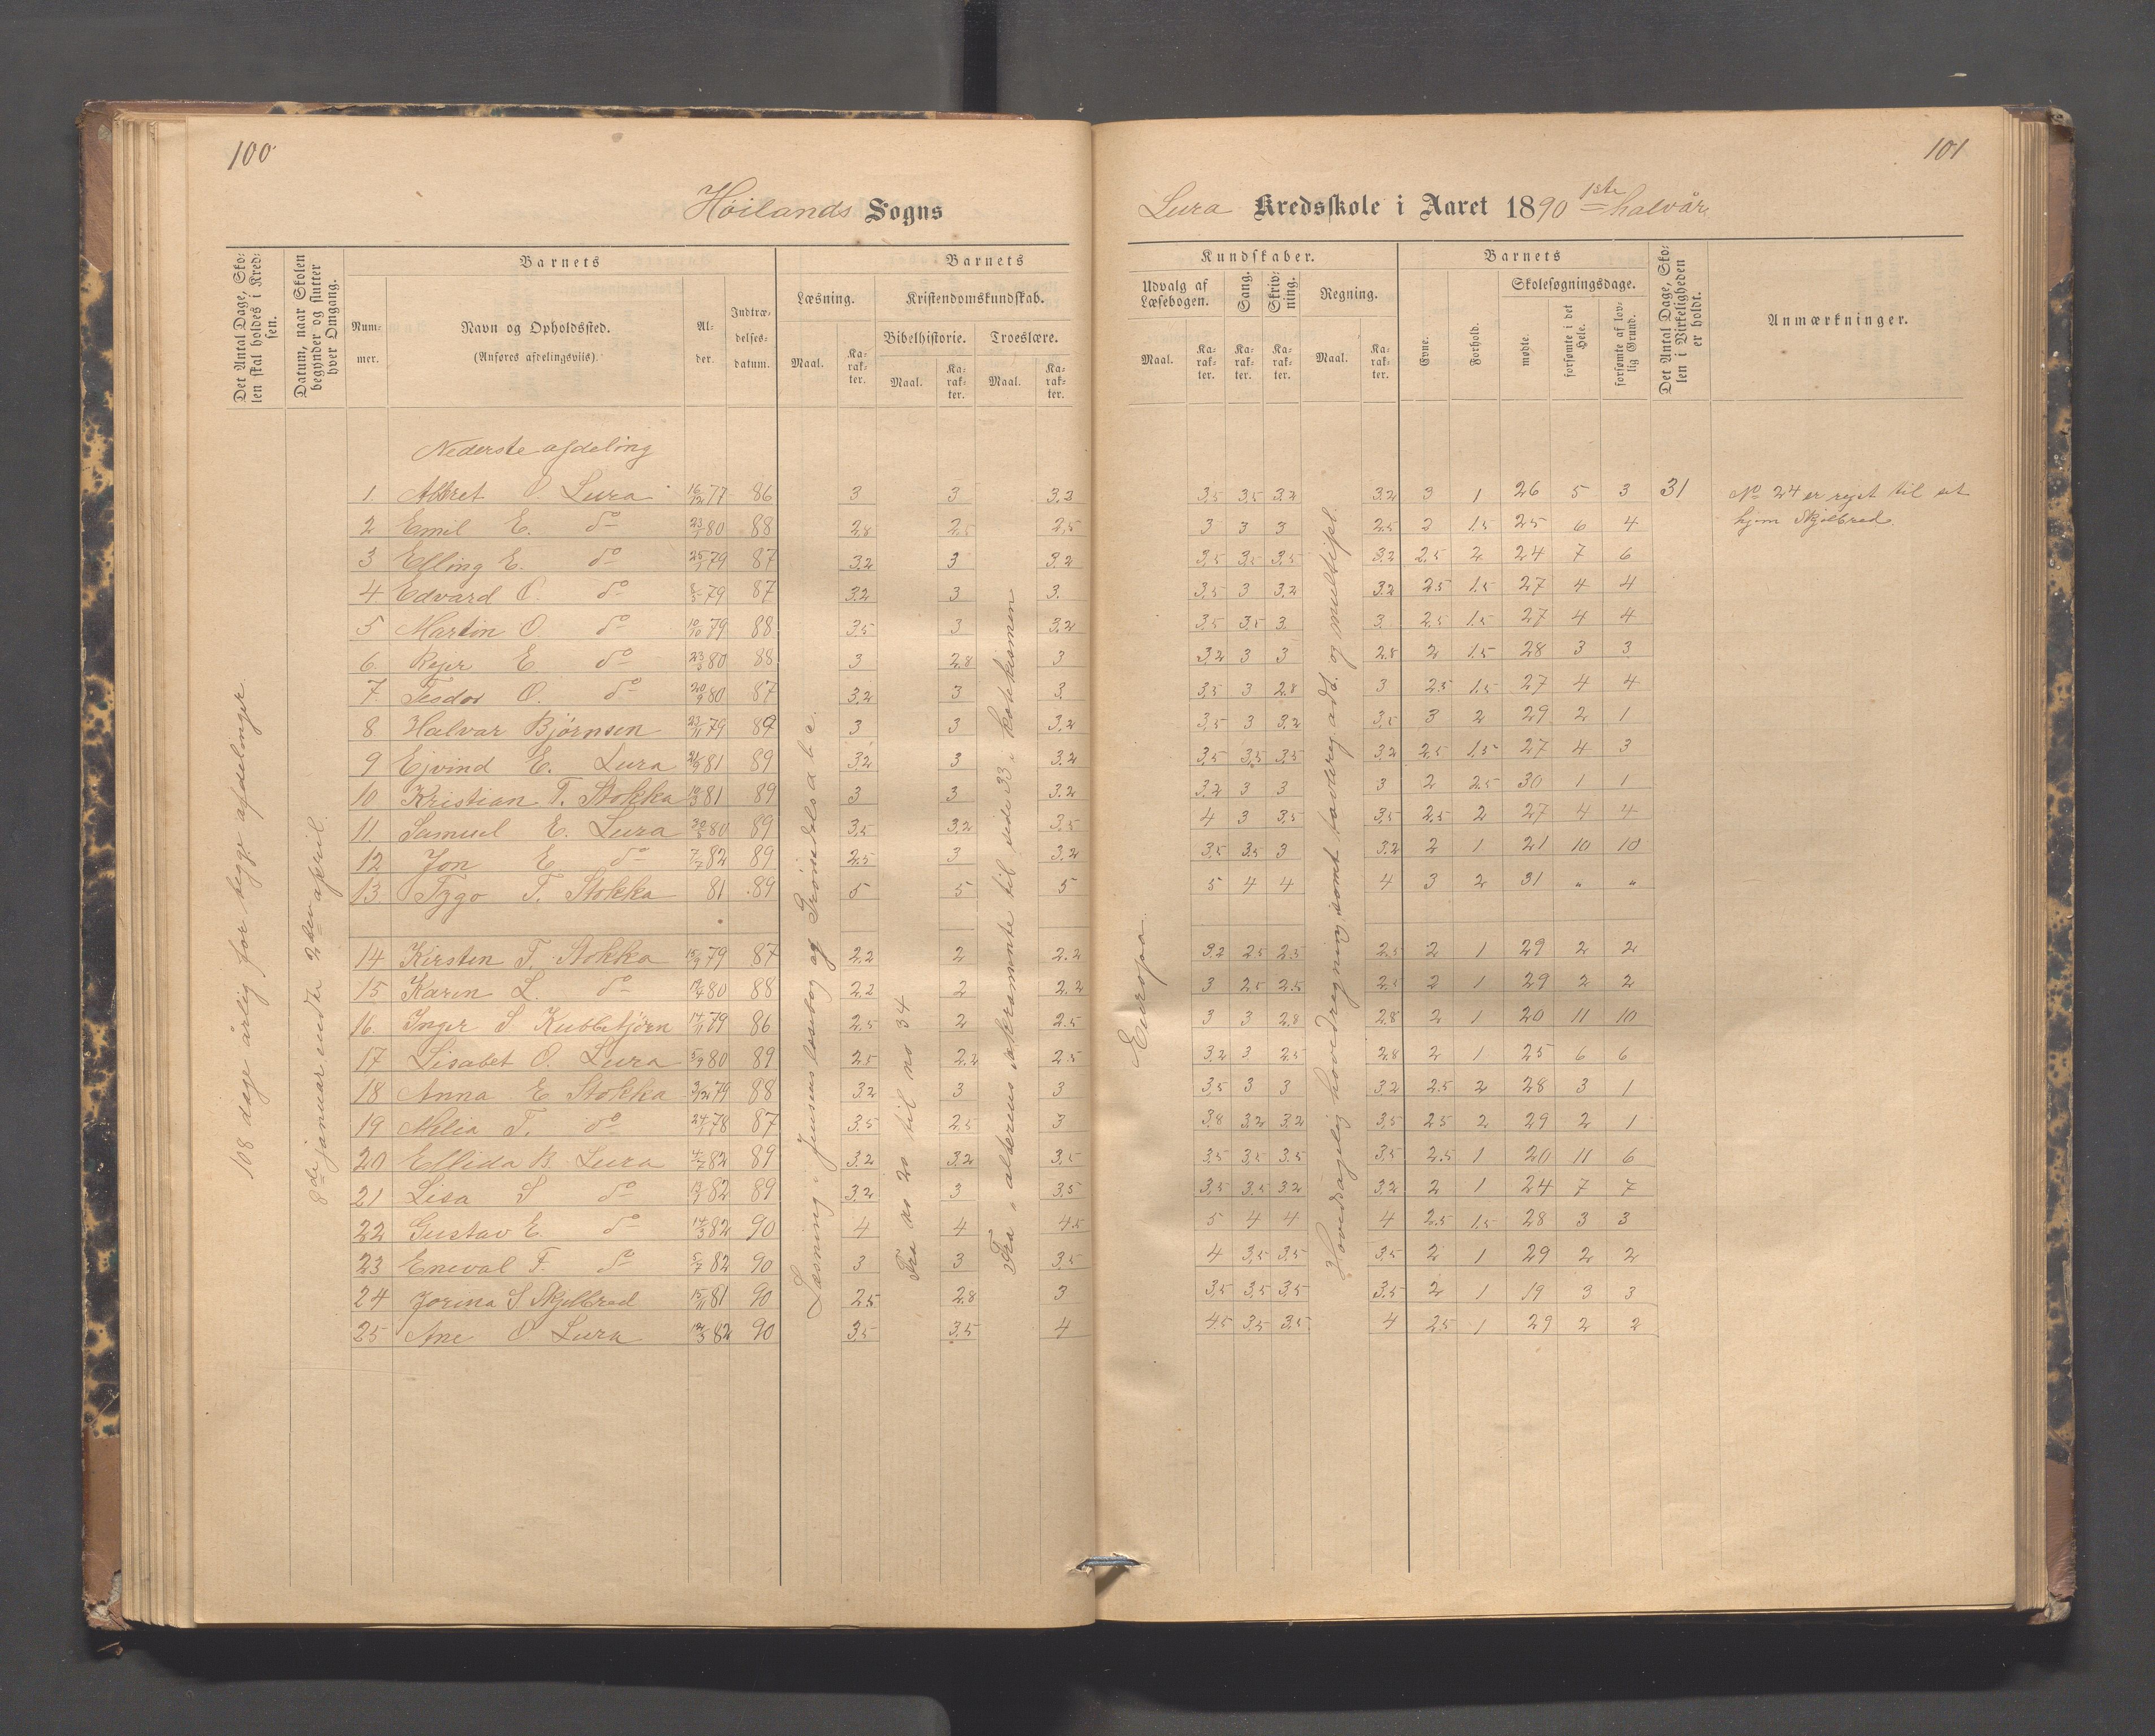 100
101
Høilands Sogns
Lura Kredsskole i Aaret 1890 1ste halvår
Det Antal Dage, Skolen skal holdes i Kredsen.
Datum, naar Skolen begynder og slutter hver Omgang.
Barnets
Nummer.
Navn og Opholdssted.
(Anføres afdelingsviis).
Alder.
Indtrædelsesdatum.
Barnets
Læsning.
Kristendomskundskab.
Bibelhistorie.
Troeslære.
Maal. Karakter. Maal. Karakter. Maal. Karakter.
Kundskaber.
Udvalg af Læsebogen.
Sang.
Skrivning.
Regning.
Maal. Karakter. Karakter. Karakter. Maal. Karakter.
Barnets
Evne.
Forhold.
Skolesøgningsdage.
mødte.
forsømte i det Hele.
forsømte af lovlig Grund.
Det Antal Dage, Skolen i Virkeligheden er holdt.
Anmærkninger.
108 dage årlig for begge afdelinger.
8de januar endte 2den april.
Læsning i Jensens læsebog og
Fra no 20 til no 34
Europa
Nederste afdeling
1. O. Lura 16/12 77 86 3 3 3.2 3,5 3,5 3,2 3,2 3 1 26 5 3 31
No 24 er rejst til sit
hjem Skjelbred.
2 Emil E. do 80 88 2,8 2,5 2,5 3 3 3 2,5 2 1.5 25 6 4
3 Elling E. do 79 87 3,2 3 3.2 3,5 3,5 3,5 3,2 2.5 2 24 7 6
4 Edvard O. do 79 87 3,2 3 3. 3,5 3 3,2 3,2 2.5 1.5 27 4 4
5 Martin O. do 10/10 79 88 3,5 3 3,2 3,5 3,5 3 3 2,5 1.5 27 4 4
6. E do 80 88 3 2,8 3 3,2 3 3 2,8 2 1.5 28 3 3
7. O. do 20/9 80 87 3,2 3 3 3,5 3 2,8 3 2.5 1.5 27 4 4
8 Halvar Bjørnsen 23/11 79 89 3 3 3,2 3,5 3 3,2 3,5 3 2 29 2 1
9 Ejvind E. Lura 81 89 3,2 3 3,2 3,5 3,5 3,5 3,2 2,5 1.5 27 4 3
10. Kristian T. Stokka 81 89 3 3 3.2 3,2 3 3 3 2 2.5 30 1 1
11. Samuel E. Lura 80 89 3,5 3,2 3,5 4 3 3,5 3,5 2.5 2 27 4 4
12 Jon E do 7/7 82 89 2.5 3 3.2 3,5 3.5 3 3.2 2 1 21 10 10
13. T. Stokka 81 89 5 5 5 5 4 4 4 3 2 31 " "
14 Kirsten T. Stokka 15/9 79 87 2,2 2 2.2 3.2 2.5 2.5 2.5 2 1 29 2 2
15 Karen L. do 80 88 2,2 2 2.2 3 2.5 2.5 2.5 2 1 29 2 2
16. Inger S Kubbetjørn 79 86 2.5 2 2.5 3 3 2.8 2.8 2 1 20 11 10
17 Lisabet O. Lura 80 89 2.5 2.2 2.5 3.2 3 2.5 2.8 2 1 25 6 6
18 Anna E Stokka 3/12 79 88 3.2 3 3 3,5 3 3 3,2 2.5 2 28 3 1
19 T. do 78 87 3.5 2.5 3 3,8 3,2 3,2 3,5 2.5 2 29 2 1
20 Ellida B. Lura 82 89 3.2 3,2 3,5 3,5 3,5 3.5 3,5 2.5 1 20 11 6
21 Lisa S do 82 89 3,2 3 3,5 3,5 3,5 3,2 3,2 2 1 24 7 7
22 Gustav E. do 82 90 4 4 4.5 5 4 4 4 2.5 1.5 28 3 3
23 Eneval F. do 82 90 3 3 3,5 4 3,5 3,5 3.5 2 1 29 2 2
24 Jorina S Skjelbred 15/11 81 90 2.5 2.8 3 3,5 3,5 3,5 3.5 2 1 19 3 3
25 Ane O Lura 82 90 3.5 3,5 4 4.5 3,5 3,5 4 2.5 1 29 2 2